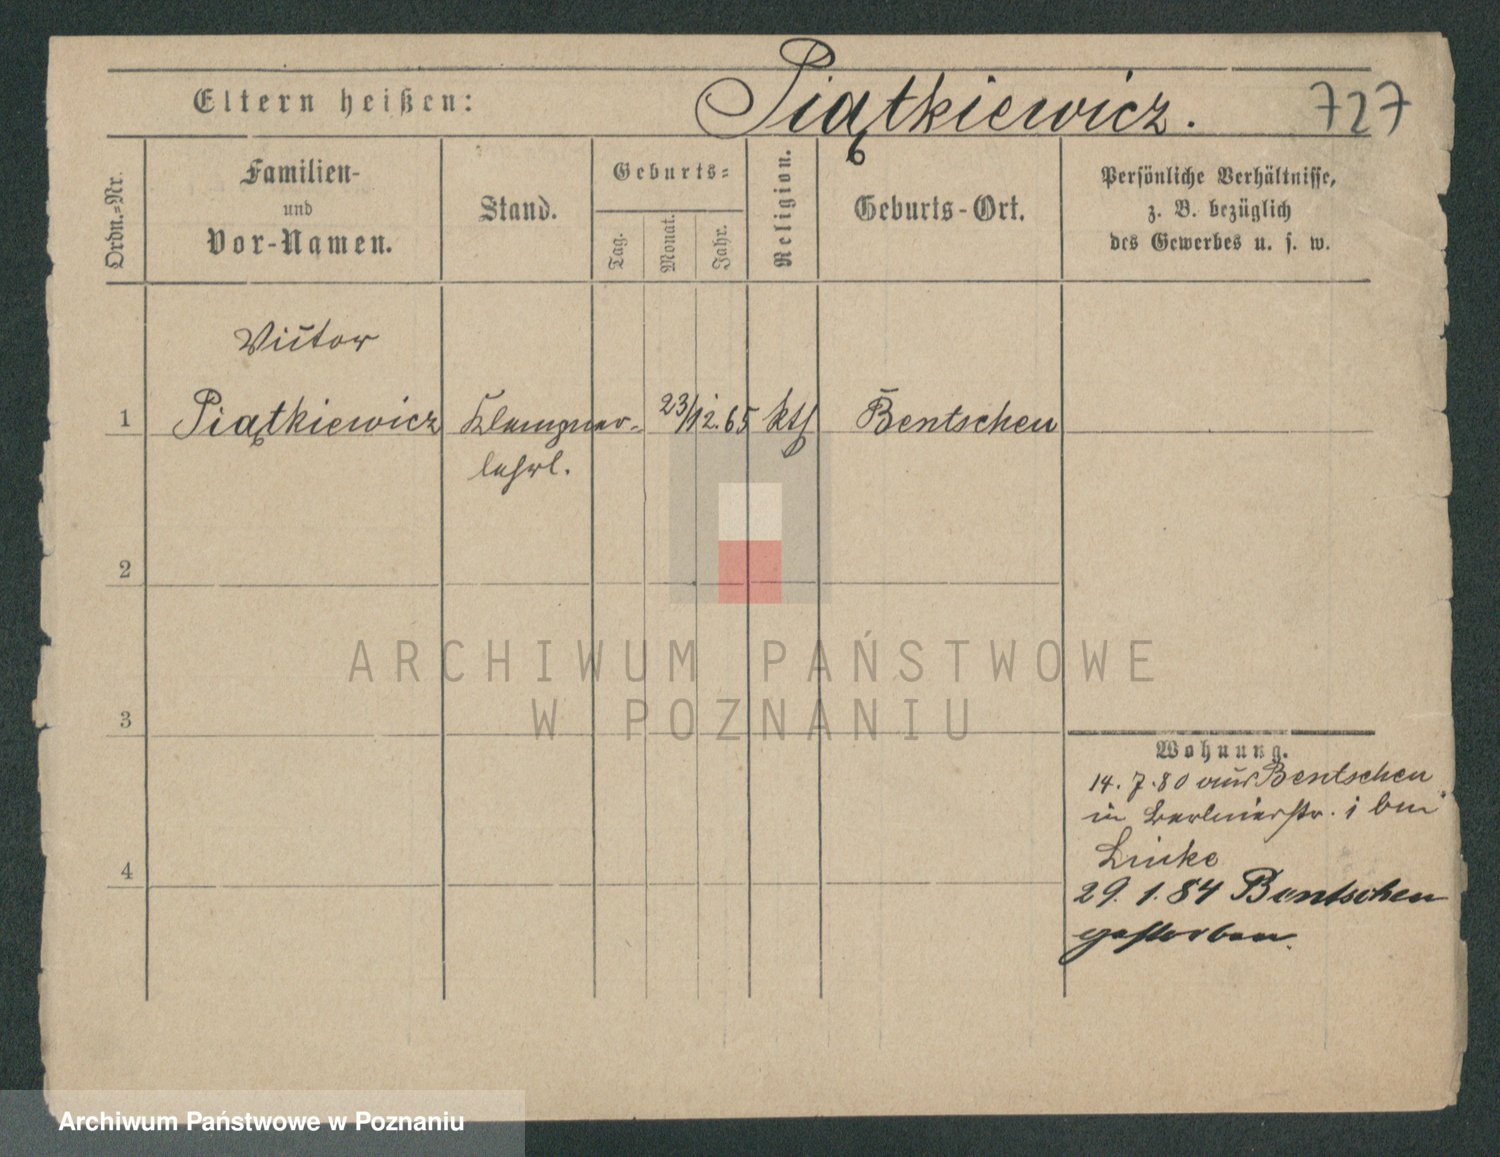 Piątkiewicz. 727
Eltern heißen:
Ordn.=Nr.
Familien-
und
Vor-Namen.
Stand.
Geburts=
Tag.
Monat.
Jahr.
Religion.
Geburts-Ort.
Persönliche Verhältnisse,
z. B. bezüglich
des Gewerbes u. s. w.
Victor
1 Piątkiewicz Klempner- 23/12.65 kth Bentschen
lehrl.
2
3
4
Wohnung.
14.7.80 aus Bentschen
in Berlinerstr. 1 bei
Linke
29.1.84 Bentschen
gestorben.
ARCHIWUM PAŃSTWOWE
W POZNANIU
Archiwum Państwowe w Poznaniu